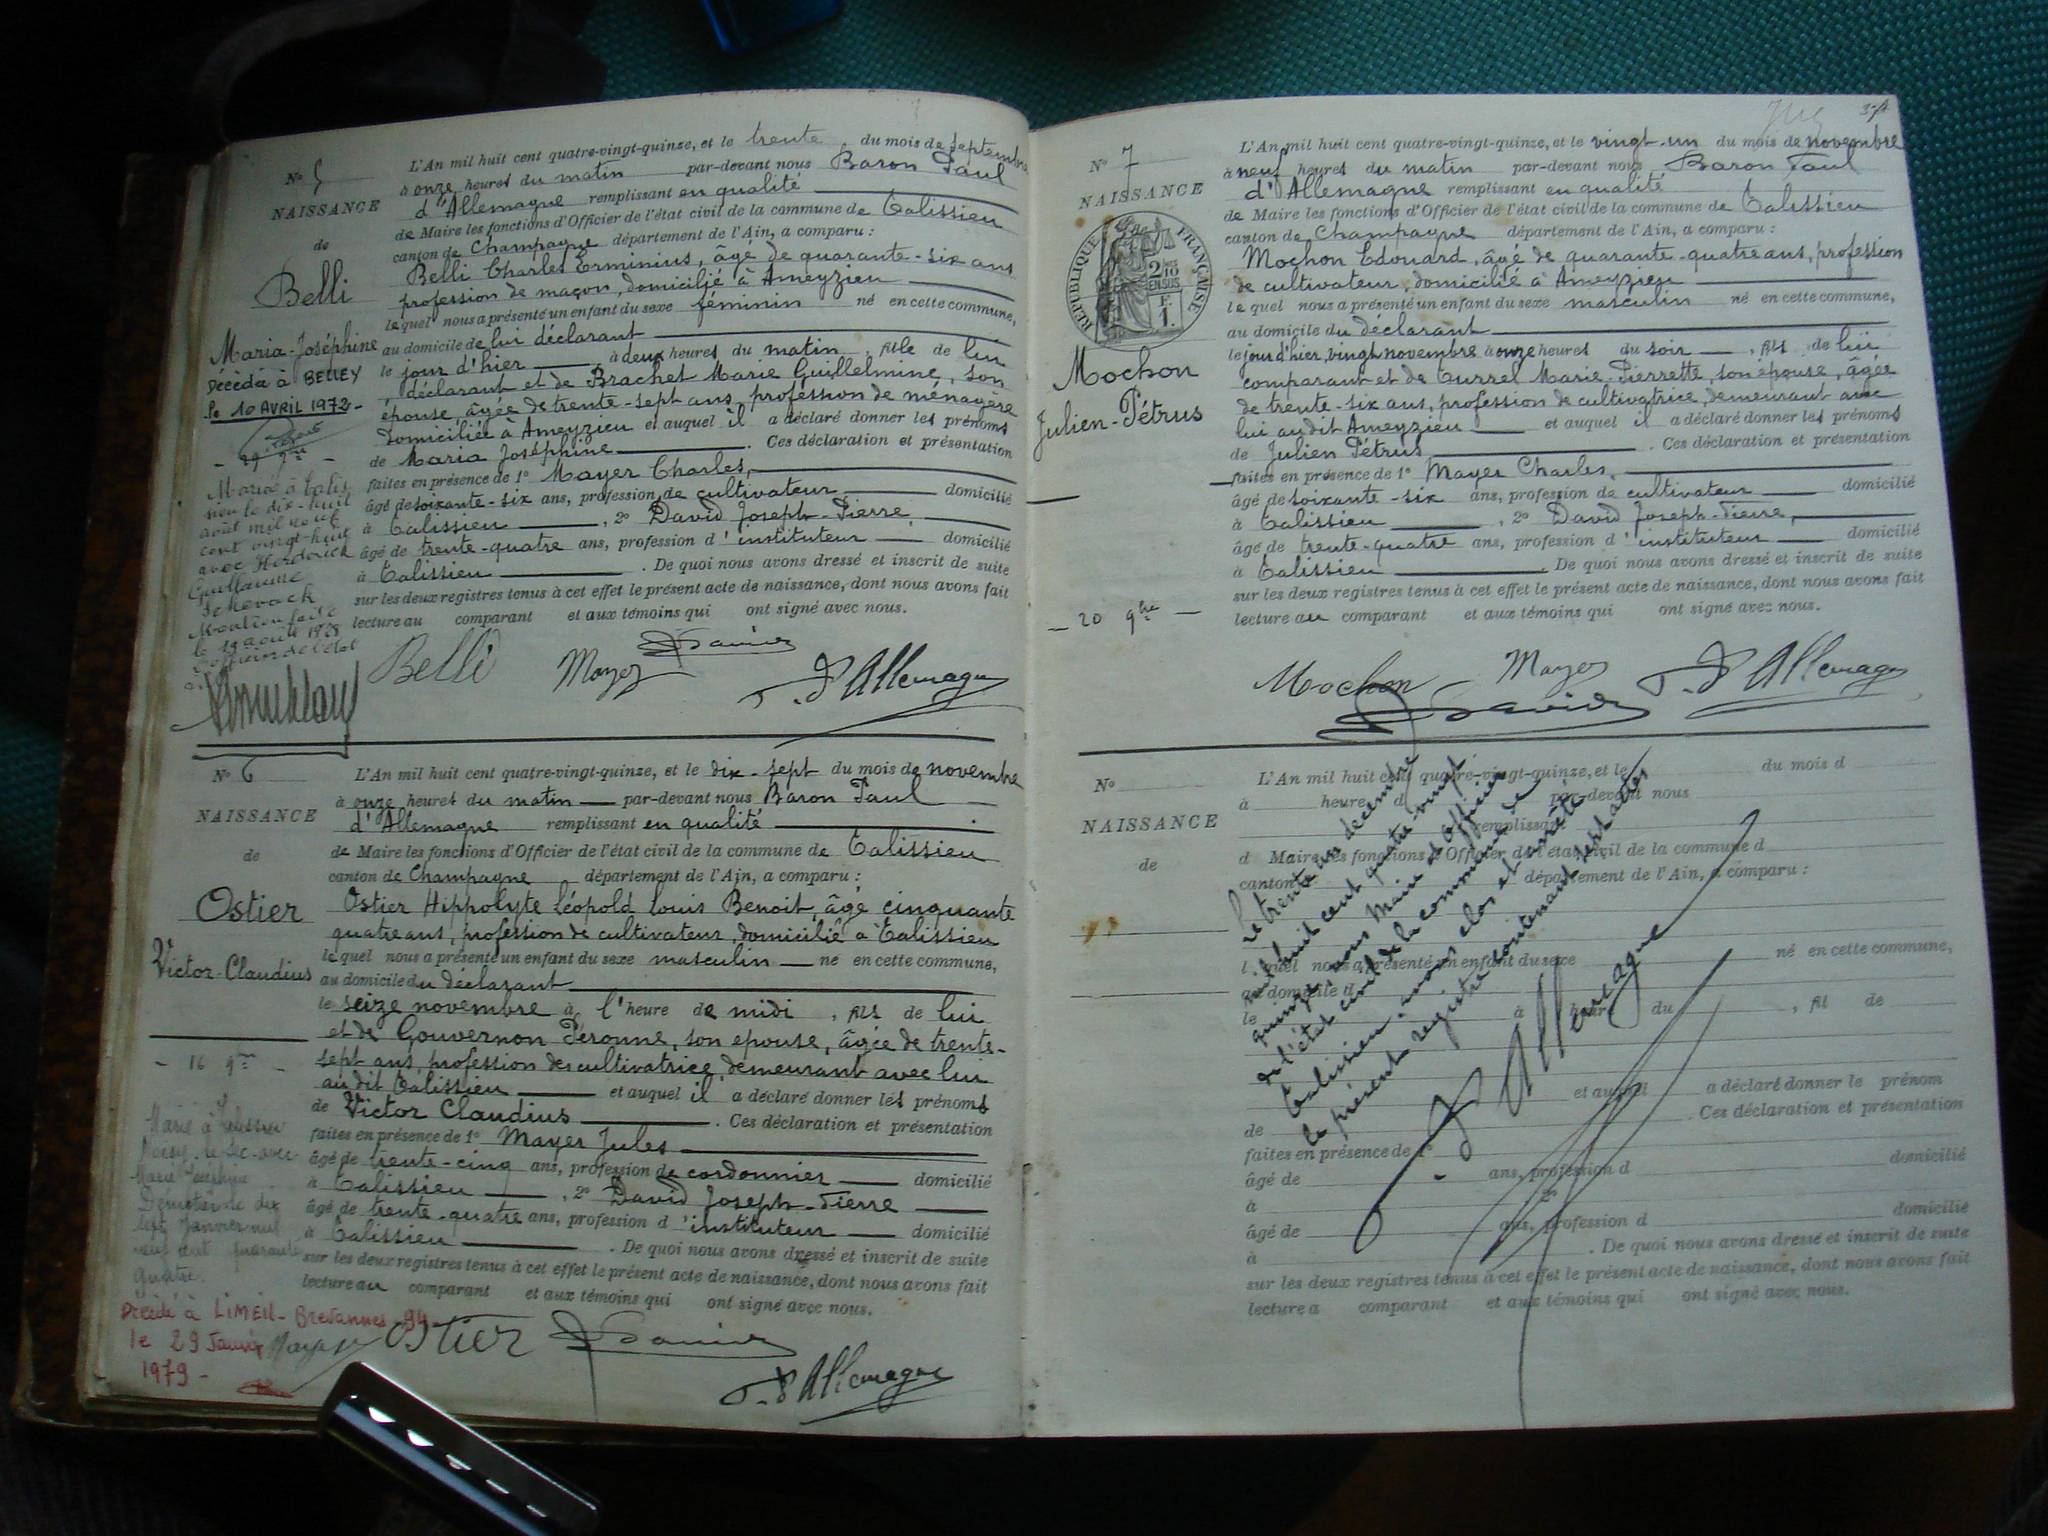 N° 5
NAISSANCE
de
Belli
Maria-Joséphine
Décédée à BELLEY
le 10 AVRIL 1972
- 29 7bre -
Mariée à Talis
sieu le dix-huit
août mil neuf
cent vingt-huit
avec Hendrick
Guillaume
Mention faite
le 19 août 1928
L'officier de l'état
L'An mil huit cent quatre-vingt-quinze, et le trente du mois de septembre
à onze heures du matin par-devant nous Baron Paul
d'Allemagne remplissant en qualité
de Maire les fonctions d'Officier de l'état civil de la commune de Talissieu
canton de Champagne département de l'Ain, a comparu :
Belli Charles Erminius, âgé de quarante-six ans
profession de maçon, domicilié à Ameyzieu
lequel nous a présenté un enfant du sexe féminin né en cette commune,
au domicile de lui déclarant
le jour d'hier à deux heures du matin, fille de lui
déclarant et de Brachet Marie Guillelmine, son
épouse, âgée de trente-sept ans, profession de ménagère
domiciliée à Ameyzieu et auquel il a déclaré donner les prénoms
de Maria Joséphine. Ces déclaration et présentation
faites en présence de 1° Mayer Charles,
âgé de soixante-six ans, profession de cultivateur domicilié
à Talissieu, 2° David Joseph-Pierre,
âgé de trente-quatre ans, profession d'instituteur domicilié
à Talissieu. De quoi nous avons dressé et inscrit de suite
sur les deux registres tenus à cet effet le présent acte de naissance, dont nous avons fait
lecture au comparant et aux témoins qui ont signé avec nous.
Belli Mayer David
P. d'Allemagne
N° 6
NAISSANCE
de
Ostier
Victor-Claudius
- 16 9bre -
Marié à
Noisy-le-Sec avec
Marie Joséphine
le dix
sept Janvier mil
neuf cent quarante
quatre.
Décédé à LIMEIL-Brevannes 94
le 29 Janvier
1979 -
L'An mil huit cent quatre-vingt-quinze, et le dix-sept du mois de novembre
à onze heures du matin par-devant nous Baron Paul
d'Allemagne remplissant en qualité
de Maire les fonctions d'Officier de l'état civil de la commune de Talissieu
canton de Champagne département de l'Ain, a comparu :
Ostier Hippolyte Léopold Louis Benoit, âgé cinquante
quatre ans, profession de cultivateur, domicilié à Talissieu
lequel nous a présenté un enfant du sexe masculin né en cette commune,
au domicile du déclarant
le seize novembre à l'heure de midi, fils de lui
et de Gouvernon Péronne, son epouse, âgée de trente-
sept ans, profession de cultivatrice, demeurant avec lui
au dit Talissieu et auquel il a déclaré donner les prénoms
de Victor Claudius. Ces déclaration et présentation
faites en présence de 1° Mayer Jules
âgé de trente-cinq ans, profession de cordonnier domicilié
à Talissieu, 2° David Joseph-Pierre
âgé de trente-quatre ans, profession d'instituteur domicilié
à Talissieu. De quoi nous avons dressé et inscrit de suite
sur les deux registres tenus à cet effet le présent acte de naissance, dont nous avons fait
lecture au comparant et aux témoins qui ont signé avec nous.
Mayer Ostier David
P. d'Allemagne
N° 7
NAISSANCE
RÉPUBLIQUE FRANÇAISE
2/10
EN SUS
F.
1.
Mochon
Julien-Pétrus
- 20 9bre -
L'An mil huit cent quatre-vingt-quinze, et le vingt-un du mois de novembre
à neuf heures du matin par-devant nous Baron Paul
d'Allemagne remplissant en qualité
de Maire les fonctions d'Officier de l'état civil de la commune de Talissieu
canton de Champagne département de l'Ain, a comparu :
Mochon Edouard, âgé de quarante-quatre ans, profession
de cultivateur, domicilié à Ameyzieu
lequel nous a présenté un enfant du sexe masculin né en cette commune,
au domicile du déclarant
le jour d'hier, vingt novembre à onze heures du soir, fils de lui
comparant et de Turrel Marie-Pierrette, son épouse, âgée
de trente-six ans, profession de cultivatrice, demeurant avec
lui audit Ameyzieu et auquel il a déclaré donner les prénoms
de Julien Pétrus. Ces déclaration et présentation
faites en présence de 1° Mayer Charles,
âgé de soixante-six ans, profession de cultivateur domicilié
à Talissieu, 2° David Joseph-Pierre,
âgé de trente-quatre ans, profession d'instituteur domicilié
à Talissieu. De quoi nous avons dressé et inscrit de suite
sur les deux registres tenus à cet effet le présent acte de naissance, dont nous avons fait
lecture au comparant et aux témoins qui ont signé avec nous.
Mochon Mayer P. d'Allemagne
David
N°
NAISSANCE
de
L'An mil huit cent quatre-vingt-quinze, et le du mois d
à heure d par-devant nous
remplissant
d Maire les fonctions d'Officier de l'état civil de la commune d
canton d département de l'Ain, a comparu :
l quel nous a présenté un enfant du sexe né en cette commune,
au domicile d
le à heure du , fil de
et auquel a déclaré donner le prénom
de . Ces déclaration et présentation
faites en présence de 1°
âgé de ans, profession d domicilié
à , 2°
âgé de ans, profession d domicilié
à . De quoi nous avons dressé et inscrit de suite
sur les deux registres tenus à cet effet le présent acte de naissance, dont nous avons fait
lecture a comparant et aux témoins qui ont signé avec nous.
Le trente un décembre
mil huit cent quatre-vingt
quinze, nous Maire et Officier
de l'état civil de la commune de
Talissieu, avons clos et arrêté
le présent registre contenant sept actes
P. d'Allemagne